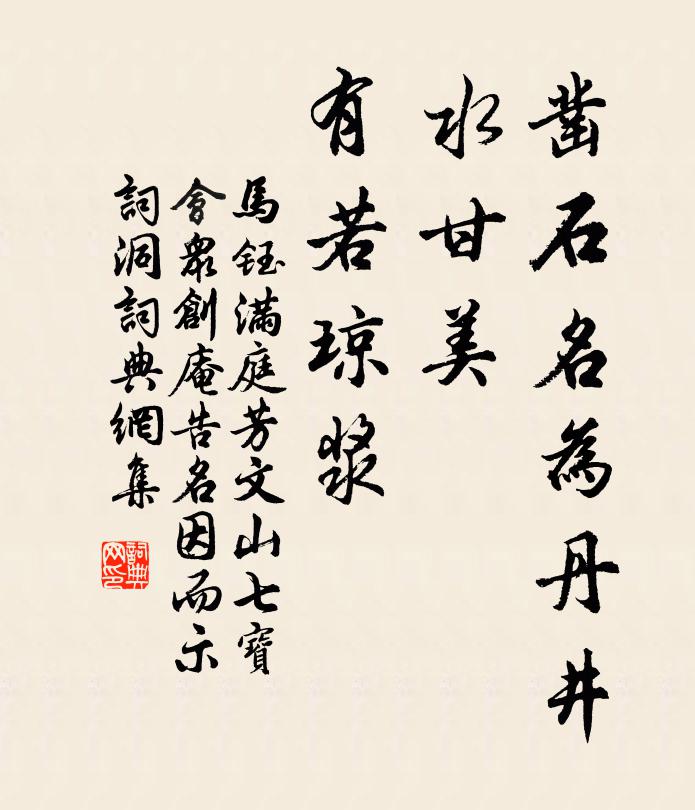 凿石名為丹井
水甘美
有若琼浆
馬鈺滿庭芳文山七寶
會眾創庵告名因而示
詞洞詞典網集
詞典
网印